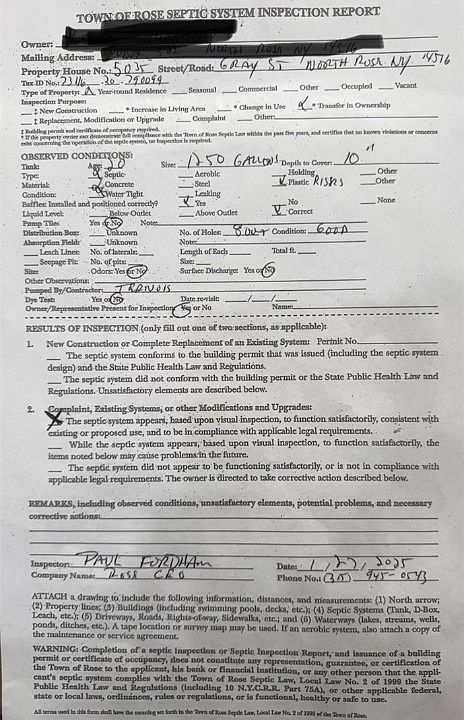 TOWN OF ROSE SEPTIC SYSTEM INSPECTION REPORT
Owner:
Mailing Address: NORTH ROSE NY 14516
Property House No.: 5035 Street/Road: GRAY ST NORTH ROSE NY 14516
Tax ID No.:
Type of Property: Year-round Residence Seasonal Commercial Other Occupied Vacant
Inspection Purpose:
‡ New Construction * Increase in Living Area * Change in Use * Transfer in Ownership
‡ Replacement, Modification or Upgrade Complaint Other:
‡ Building permit and certificate of occupancy required.
* If the property owner can demonstrate full compliance with the Town of Rose Septic Law within the past five years, and certifies that no known violations or concerns
exist concerning the operation of the septic system, no inspection is required.
OBSERVED CONDITIONS:
Tank: Age: 20 Size: 1250 GALLONS Depth to Cover: 10"
Type: Septic Aerobic Holding Other
Material: Concrete Steel Plastic RISERS Other
Condition: Water Tight Leaking
Baffles: Installed and positioned correctly? Yes No None
Liquid Level: Below Outlet Above Outlet Correct
Pump Tile: Yes or No Note:
Distribution Box: Unknown No. of Holes: 8 Condition: GOOD
Absorption Field: Unknown Note:
Leach Lines: No. of laterals: Length of Each Total ft.
Seepage Pit: No. of pits: Size:
Site: Odors: Yes or No Surface Discharge: Yes or No
Other Observations:
Pumped By/Contractor:
Dye Test: Yes or No Date re-visit: / /
Owner/Representative Present for Inspection: Yes or No Name:
RESULTS OF INSPECTION (only fill out one of two sections, as applicable):
1. New Construction or Complete Replacement of an Existing System: Permit No.
The septic system conforms to the building permit that was issued (including the septic system
design) and the State Public Health Law and Regulations.
The septic system did not conform with the building permit or the State Public Health Law and
Regulations. Unsatisfactory elements are described below.
2. Complaint, Existing Systems, or other Modifications and Upgrades:
X The septic system appears, based upon visual inspection, to function satisfactorily, consistent with
existing or proposed use, and to be in compliance with applicable legal requirements.
While the septic system appears, based upon visual inspection, to function satisfactorily, the
items noted below may cause problems in the future.
The septic system did not appear to be functioning satisfactorily, or is not in compliance with
applicable legal requirements. The owner is directed to take corrective action described below.
REMARKS, including observed conditions, unsatisfactory elements, potential problems, and necessary
corrective actions:
Inspector: PAUL FORDHAM Date: 1 / 27 / 2025
Company Name: ROSE CEO Phone No.: (315) 945-0543
ATTACH a drawing to include the following information, distances, and measurements: (1) North arrow;
(2) Property lines; (3) Buildings (including swimming pools, decks, etc.); (4) Septic Systems (Tank, D-Box,
Leach, etc.); (5) Driveways, Roads, Rights-of-way, Sidewalks, etc.; and (6) Waterways (lakes, streams, wells,
ponds, ditches, etc.). A tape location or survey map may be used. If an aerobic system, also attach a copy of
the maintenance or service agreement.
WARNING: Completion of a septic inspection or Septic Inspection Report, and issuance of a building
permit or certificate of occupancy, does not constitute any representation, guarantee, or certification of
the Town of Rose to the applicant, his bank or financial institution, or any other person that the appli-
cant's septic system complies with the Town of Rose Septic Law, Local Law No. 2 of 1999 the State
Public Health Law and Regulations (including 10 N.Y.C.R.R. Part 75A), or other applicable federal,
state or local laws, ordinances, rules or regulations, or is functional, healthy or safe to use.
All terms used in this form shall have the meaning set forth in the Town of Rose Septic Law, Local Law No. 2 of 1999 of the Town of Rose.